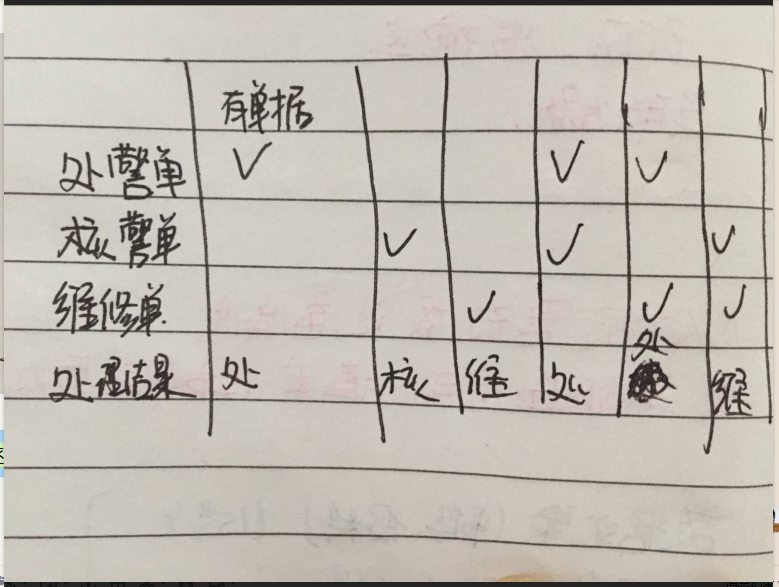 有单据
处警单 ✓ ✓ ✓
核警单 ✓ ✓ ✓
维修单 ✓ ✓ ✓
处
处理结果 处 核 维 处 维